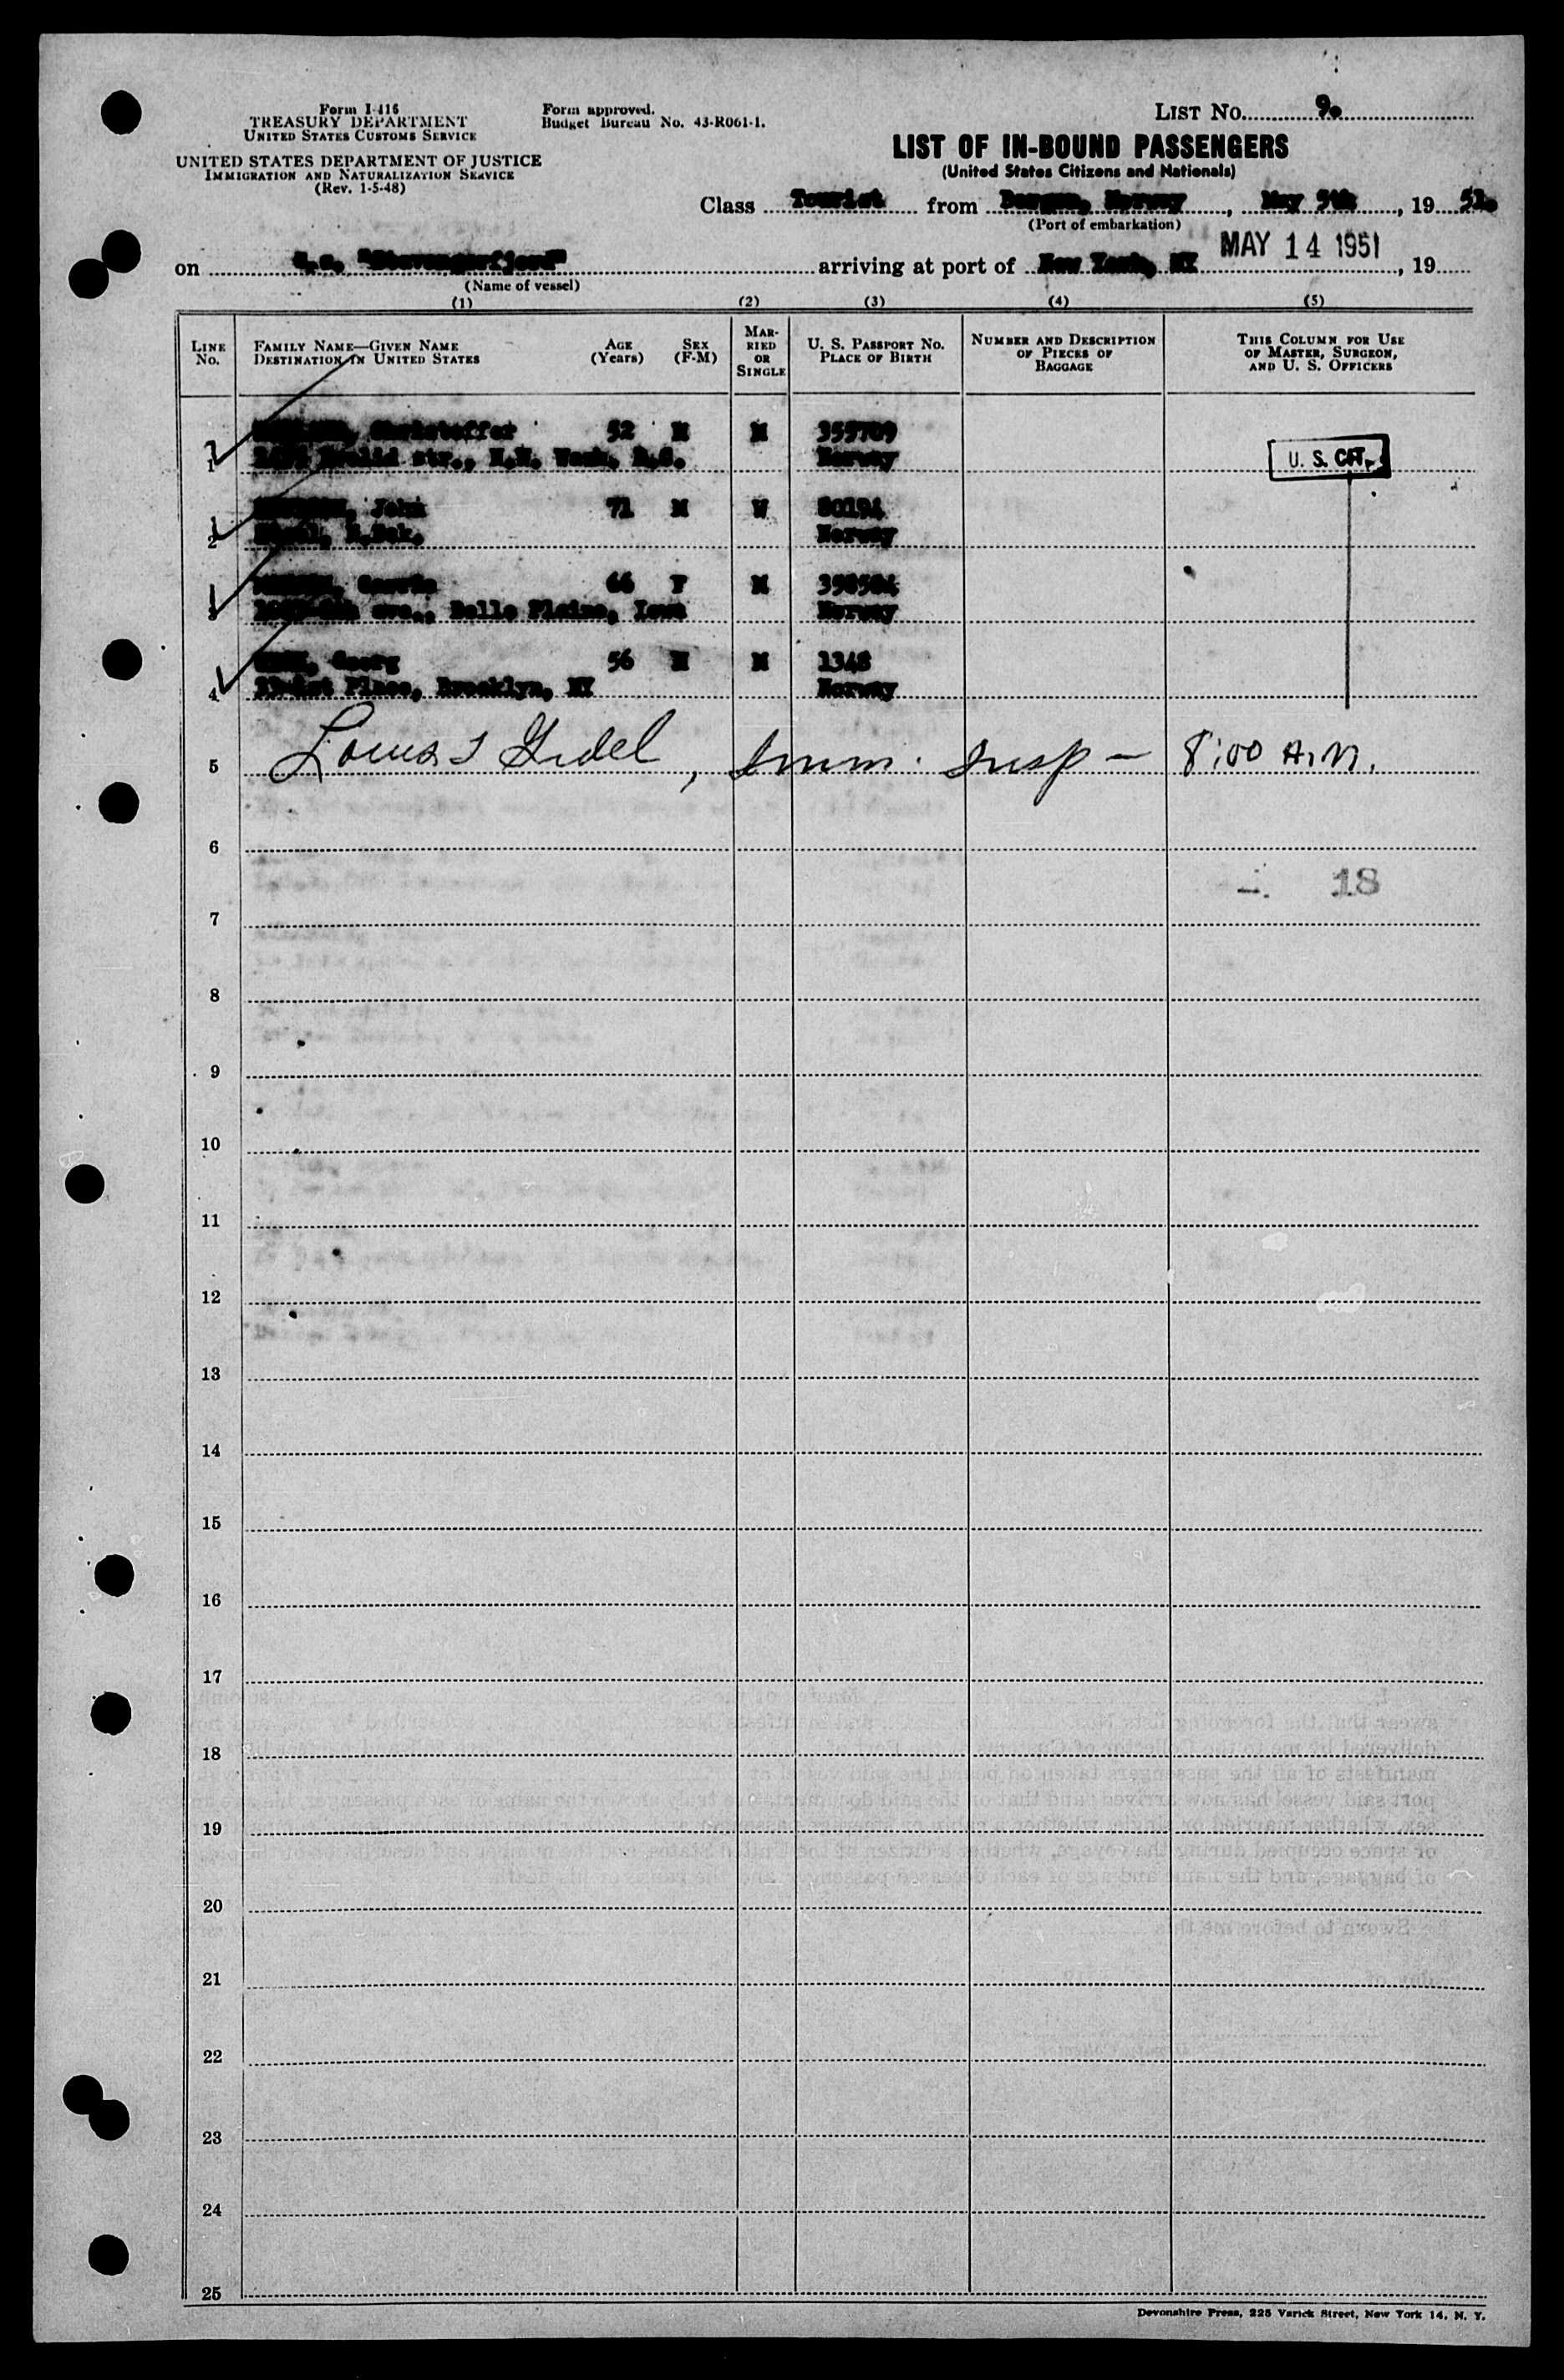 Form I-416
TREASURY DEPARTMENT
UNITED STATES CUSTOMS SERVICE
UNITED STATES DEPARTMENT OF JUSTICE
IMMIGRATION AND NATURALIZATION SERVICE
(Rev. 1-5-48)
Form approved.
Budget Bureau No. 43-R061-1.
LIST No. 9.
LIST OF IN-BOUND PASSENGERS
(United States Citizens and Nationals)
Class Tourist from Bergen, Norway, May 5th, 19 51.
(Port of embarkation)
MAY 14 1951
on s.s. "Stavangerfjord" arriving at port of New York, NY, 19
(Name of vessel)
(1) (2) (3) (4) (5)
LINE No. FAMILY NAME—GIVEN NAME DESTINATION IN UNITED STATES AGE (Years) SEX (F-M) MARRIED OR SINGLE U. S. PASSPORT No. PLACE OF BIRTH NUMBER AND DESCRIPTION OF PIECES OF BAGGAGE THIS COLUMN FOR USE OF MASTER, SURGEON, AND U. S. OFFICERS
Christoffer 52 M M 355709
1 str., N.W. Wash, D.C. Norway U. S. CIT.
John 71 M W 80194
2 Norway
66 F M
3 ave., Belle Plaine, Iowa Norway
Georg 56 M M 1348
4 Place, Brooklyn, NY Norway
5 Imm. Insp — 8:00 A.M.
6
18
7
8
9
10
11
12
13
14
15
16
17
18
19
20
21
22
23
24
25
Devonshire Press, 225 Varick Street, New York 14, N. Y.